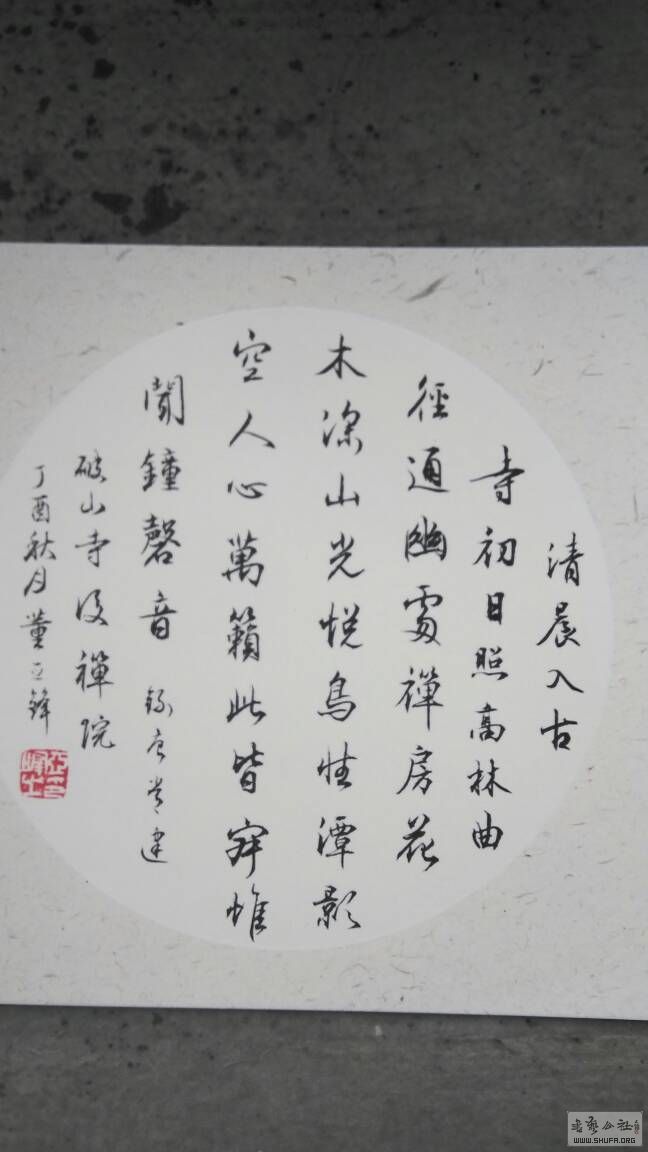 清晨入古
寺初日照高林曲
徑通幽處禪房花
木深山光悅鳥性潭影
空人心萬籟此皆寂惟
聞鐘磬音 錄唐常建
破山寺後禪院
丁酉秋月董亚鋒
WWW.SHUFA.ORG